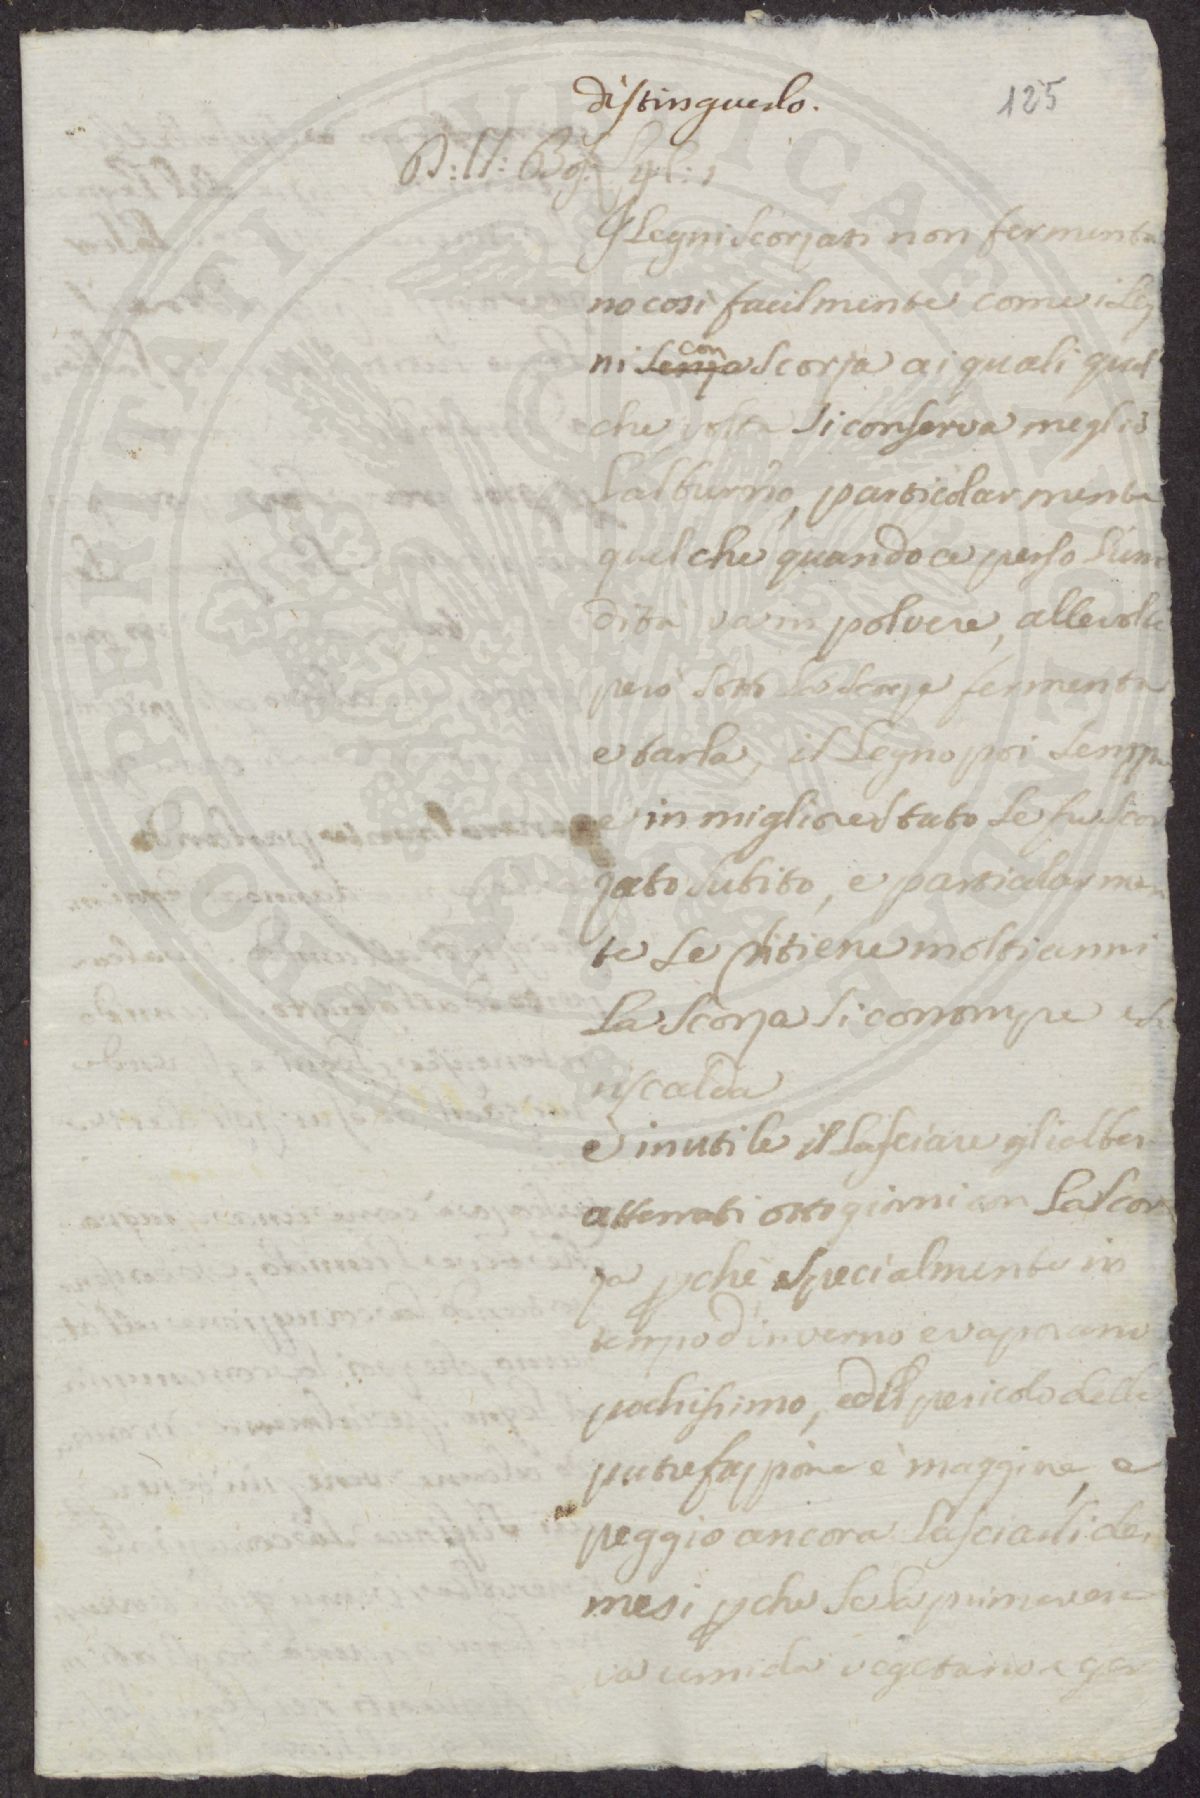 distinguerlo.
125
I Legni scorzati non fermenta
no così facilmente come i Leg
ni senza con scorza ai quali qual
che volta si conserva meglio
l'alburno, particolarmente
quel che quando à perso l'umi
dità va in polvere, alle volte
però sotto la scorza fermenta
e tarla, il Legno poi sempre
è in migliore stato se fu scor
zato subito, e particolarmen
te se si tiene molti anni
La scorza si corrompe e si
riscalda
e inutile il lasciare gli alber
atterrati otto giorni con la scor
za pchè specialmente in
tempo d'inverno evaporano
pochissimo, ed il pericolo della
putrefazione è maggiore, e
peggio ancora lasciarli de
mesi pche se la primavera
va umida vegetano e ger
PROSPERITATI PUBLICAE